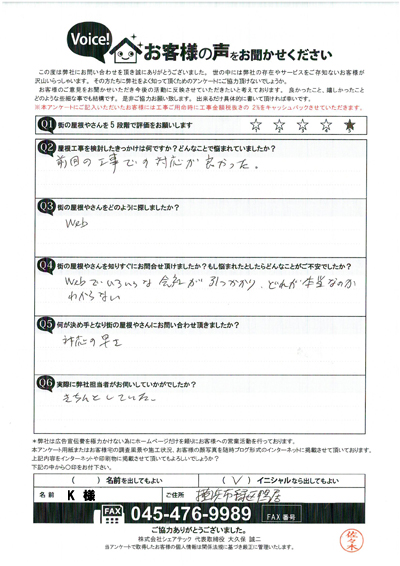 Voice!
お客様の声をお聞かせください
この度は弊社にお問い合わせを頂き誠にありがとうございました。世の中には弊社の存在やサービスをご存知ないお客様が
沢山いらっしゃいます。その方たちに弊社をよく知って頂くためのアンケートにご協力頂けないでしょうか。
お客様のご意見をお聞かせいただき今後の活動に反映させていただきたいと考えております。良かったこと、嬉しかったこと
どのような些細な事でも結構です。是非ご協力お願い致します。出来るだけ具体的に書いて頂ければ幸いです。
※本アンケートにご記入いただいたお客様には工事ご用命時に工事金額税抜きの2%をキャッシュバックさせていただきます。
Q1 街の屋根やさんを5段階で評価をお願いします ☆ ☆ ☆ ☆ ★
Q2 屋根工事を検討したきっかけは何ですか?どんなことで悩まれていましたか?
前回の工事での対応が良かった。
Q3 街の屋根やさんをどのように探しましたか?
Web
Q4 街の屋根やさんを知りすぐにお問合せ頂けましたか?もし悩まれたとしたらどんなことがご不安でしたか?
Webでいろいろな会社が引っかかり、どれが本当なのか
わからない
Q5 何が決め手となり街の屋根やさんにお問い合わせ頂きましたか?
対応の早さ
Q6 実際に弊社担当者がお伺いしていかがでしたか?
きちんとしていた。
*弊社は広告宣伝費を極力かけない為にホームページだけを頼りにお客様への営業活動を行っております。
本アンケート用紙またはお客様宅の調査風景や施工状況、お客様の顔写真を随時ブログ形式のインターネットに掲載させて頂いております。
上記内容をインターネットや印刷物に掲載させて頂いてもよろしいでしょうか?
下記の中から○印をお付け下さい。
( )名前を出してもよい (✓)イニシャルなら出してもよい
名前 K 様 ご住所 横浜市
FAX 045-476-9989 FAX番号
ご協力ありがとうございました。
株式会社シェアテック 代表取締役 大久保 誠二
当アンケートで取得したお客様の個人情報は関係法規に基づき適正に管理いたします。
佐々木